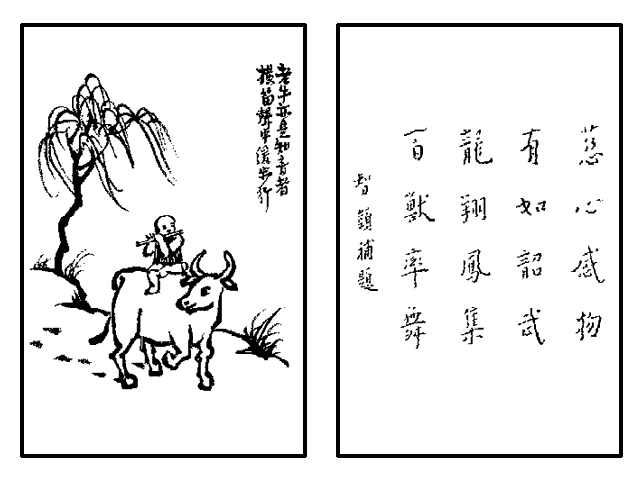 老牛亦是知音者
橫笛聲中緩步行
慈心感物
有如韶武
龍翔鳳集
百獸率舞
智顗補題